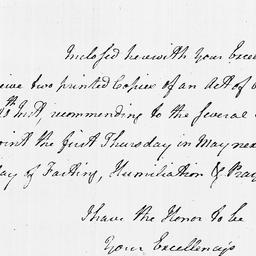 Inclosed herewith Your Excel
two printed Copies of an Act of
th Inst, recommending to the several
the first Thursday in May nex
ay of Fasting, Humiliation & Pray
I have the Honor to be
Your Excellency's